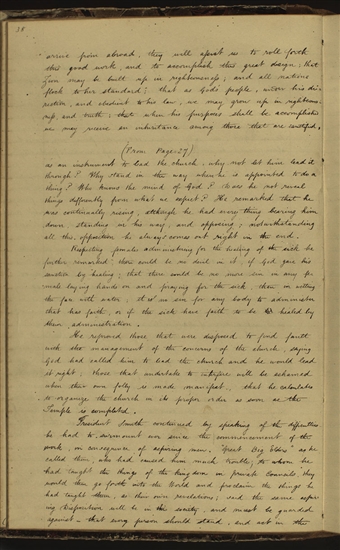 38
arrive from abroad, they will assist us to roll forth
this good work, and to accomplish this great design; that
Zion may be built up in righteousness; and all nations
flock to her standard; that as God's people, under his di-
rection, and obedient to his law, we may grow up in righteous-
ness, and truth; that when his purposes shall be accomplished
we may receive an inheritance among those that are sanctified.
(From Page 27)
as an instrument to lead the church, why not let him lead it
through? Why stand in the way when he is appointed to do a
thing? Who knows the mind of God? Does he not reveal
things differently from what we expect? He remarked that he
was continually rising, although he had every thing bearing him
down, standing in his way, and opposing; notwithstanding
all this opposition, he always comes out right in the end.
Respecting females administering for the healing of the sick he
further remarked, there could be no evil in it, if God gave his
sanction by healing; that there could be no more sin in any fe-
male laying hands on and praying for the sick, than in wetting
the face with water; it is no sin for any body to administer
that has faith, or if the sick have faith to be healed by
their administration.
He reproved those that were disposed to find fault
with the management of the concerns of the church, saying
God had called him to lead the church and he would lead
it right; those that undertake to interfere will be ashamed
when their own folly is made manifest; that he calculates
to organize the church in its proper order as soon as the
Temple is completed.
President Smith continued by speaking of the difficulties
he had to surmount ever since the commencement of the
work, in consequence of aspiring men, "Great Big Elders" as he
called them, who had caused him much trouble, to whom he
had taught the things of the kingdom in private Councils they
would then go forth into the World and proclaim the things he
had taught them, as their own revelations; said the same aspir-
ing disposition will be in this society, and must be guarded
against – that every person should stand, and act in the